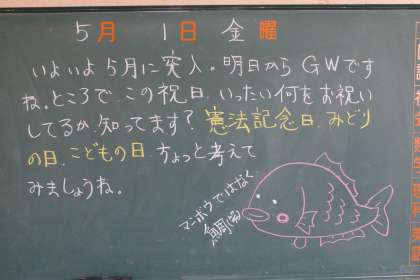 5月 1日 金曜
いよいよ5月に突入。明日からGWです
ね。ところで、この祝日、いったい何をお祝い
してるか、知ってます?憲法記念日、みどり
の日、こどもの日、ちょっと考えて
みましょうね。
マンボウではなく
鯛(笑)